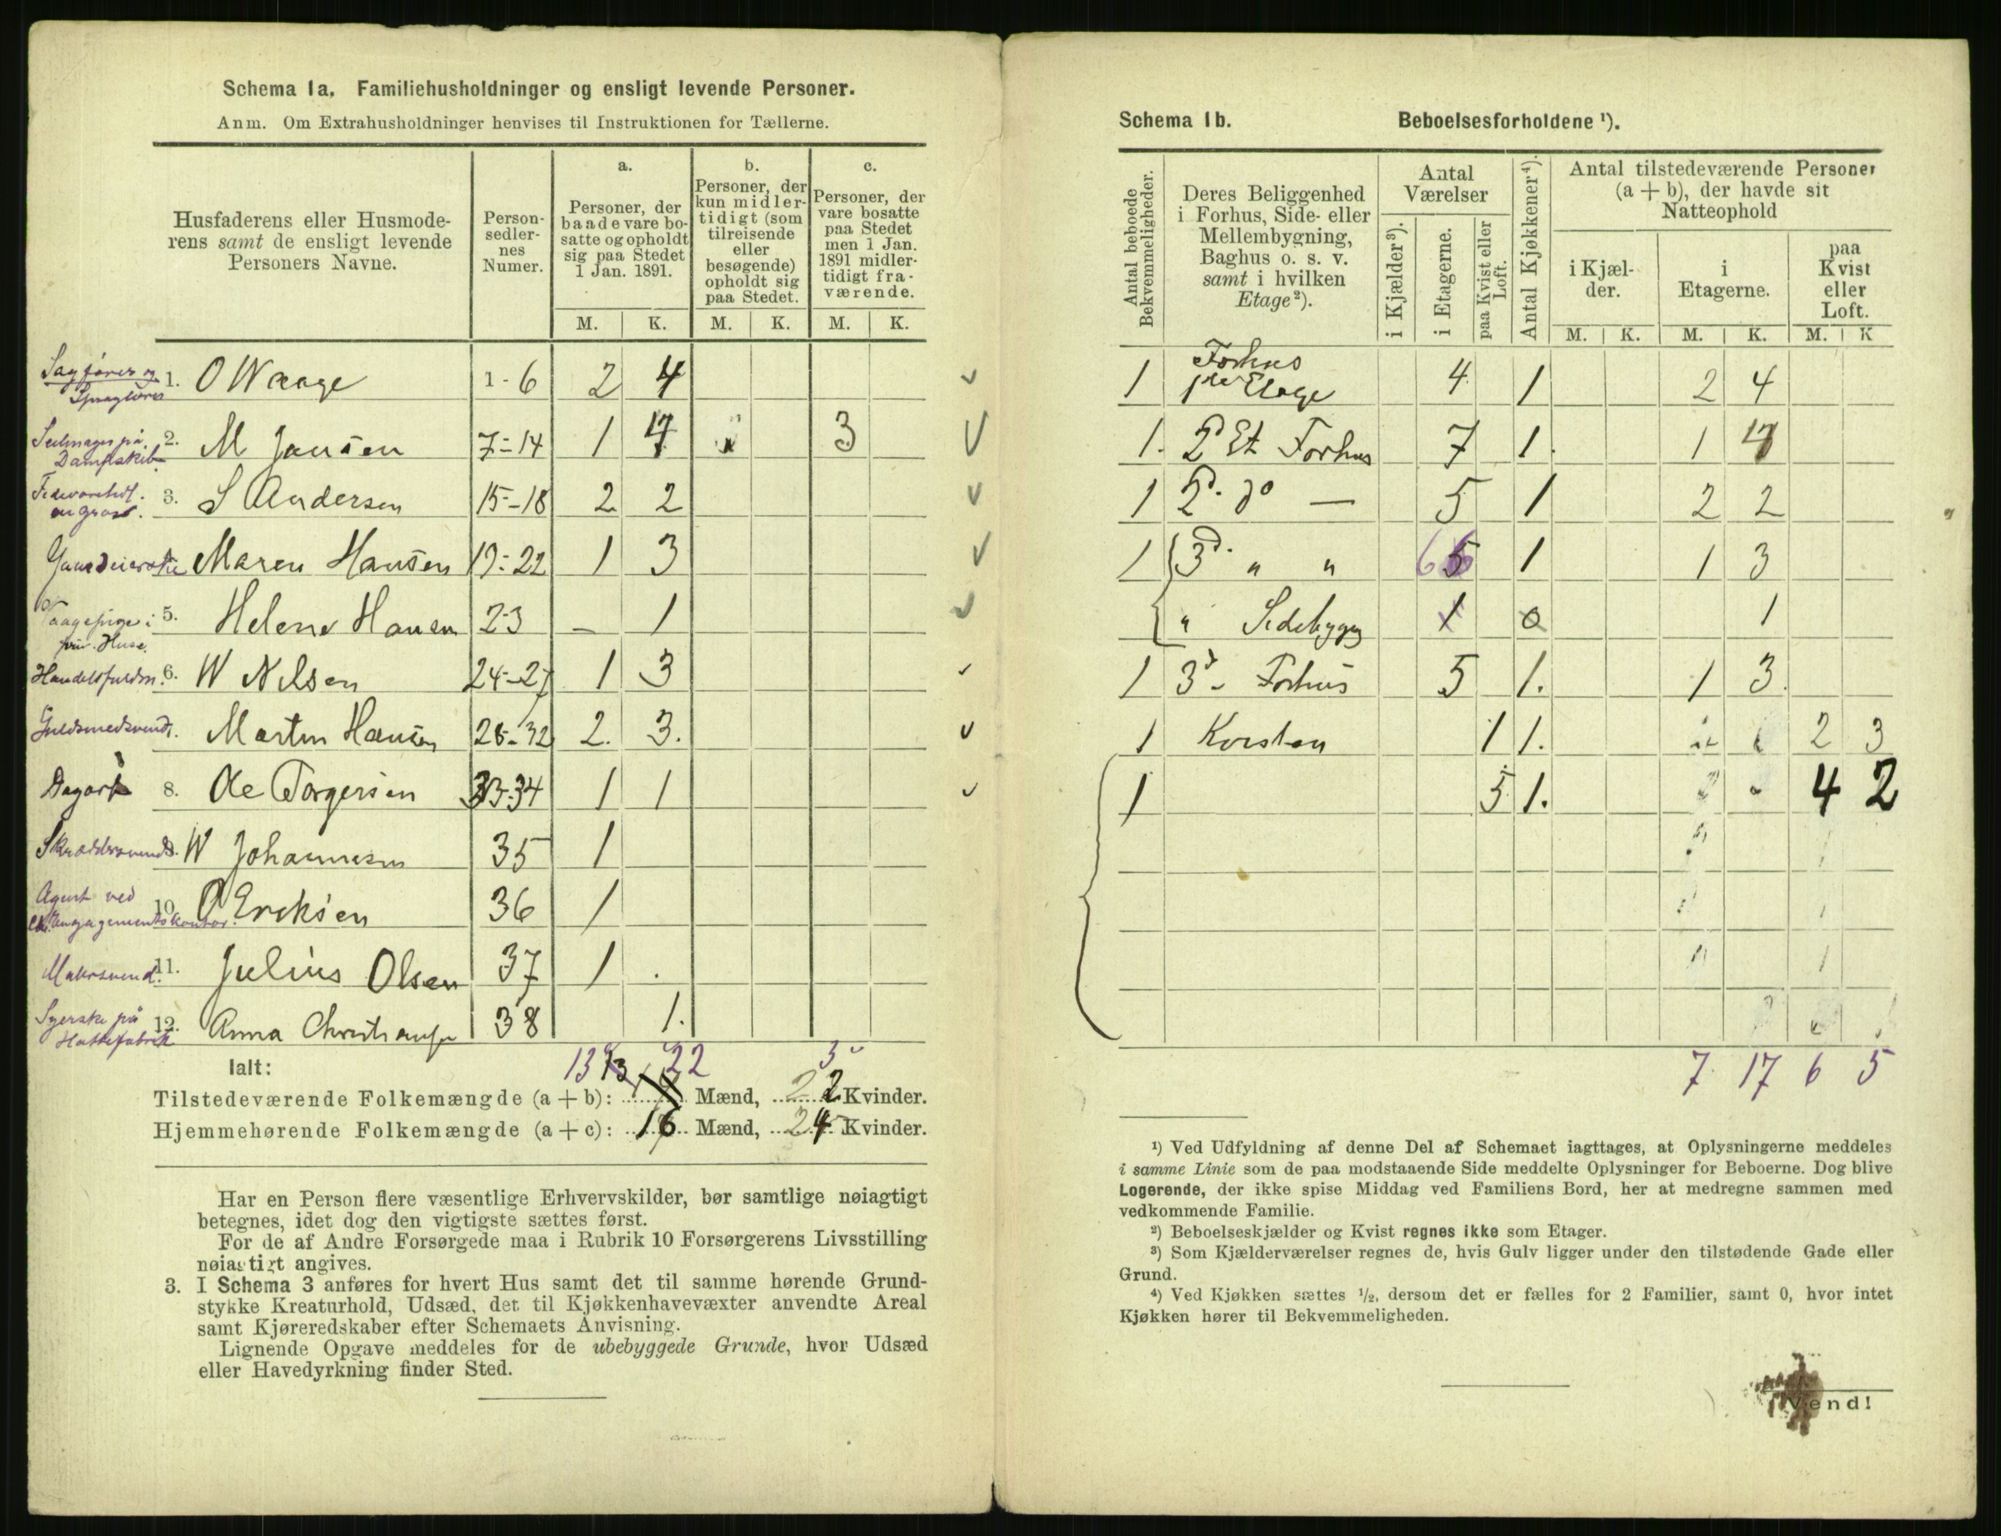 Schema 1a. Familiehusholdninger og ensligt levende Personer.
Anm. Om Extrahusholdninger henvises til Instruktionen for Tællerne.
Husfaderens eller Husmoderens samt de ensligt levende Personers Navne.
Personsedlernes Numer.
a. Personer, der baade vare bosatte og opholdt sig paa Stedet 1 Jan. 1891.
b. Personer, der kun midlertidigt (som tilreisende eller besøgende) opholdt sig paa Stedet.
c. Personer, der vare bosatte paa Stedet men 1 Jan. 1891 midlertidigt fraværende.
M. K. M. K. M. K.
Sagfører og 1. O Waage 1-6 2 4
Seilmager på Dampskib 2. M Jansen 7-14 1 7 3
Fedevarehdl. en gros. 3. S Andersen 15-18 2 2
Maren Hansen 19-22 1 3
Vaagepige i priv. Huse. 5. Helene Hansen 23 – 1
Handelsfuldm. 6. W Nilsen 24-27 1 3
Guldsmedsvend. Martin Hansen 28-32 2. 3.
Dagarb 8. Ole Torgersen 33-34 1 1
Skræddersvend W Johannesen 35 1
Agent ved engagementskontor. 10. O Ericksen 36 1
Malersvend. 11. Julius Olsen 37 1
Syerske på Hattefabrik 12. Anna Christiansen 38 1.
Ialt: 13 13 22 3
Tilstedeværende Folkemængde (a + b): Mænd, 22 Kvinder.
Hjemmehørende Folkemængde (a + c): 16 Mænd, 24 Kvinder.
Har en Person flere væsentlige Erhvervskilder, bør samtlige nøiagtigt
betegnes, idet dog den vigtigste sættes først.
For de af Andre Forsørgede maa i Rubrik 10 Forsørgerens Livsstilling
nøiagtigt angives.
3. I Schema 3 anføres for hvert Hus samt det til samme hørende Grund-
stykke Kreaturhold, Udsæd, det til Kjøkkenhavevæxter anvendte Areal
samt Kjøreredskaber efter Schemaets Anvisning.
Lignende Opgave meddeles for de ubebyggede Grunde, hvor Udsæd
eller Havedyrkning finder Sted.
Schema 1b. Beboelsesforholdene ¹).
Antal beboede Bekvemmeligheder.
Deres Beliggenhed i Forhus, Side- eller Mellembygning, Baghus o. s. v. samt i hvilken Etage ²).
Antal Værelser
i Kjælder ³).
i Etagerne.
paa Kvist eller Loft.
Antal Kjøkkener ⁴).
Antal tilstedeværende Personer (a + b), der havde sit Natteophold
i Kjælder.
i Etagerne.
paa Kvist eller Loft.
M. K. M. K. M. K
1 Forhus 1ste Etage 4 1 2 4
1. 2d Et Forhus 7 1. 1 7
1 2d. do — 5 1 2 2
1 3d. " " 6 1 1 3
" Sidebygg 1 0 1
1 3d – Forhus 5 1. 1 3.
1 Kvisten 1 1. 2 3
1 5 1. 4 2
7 17 6 5
¹) Ved Udfyldning af denne Del af Schemaet iagttages, at Oplysningerne meddeles
i samme Linie som de paa modstaaende Side meddelte Oplysninger for Beboerne. Dog blive
Logerende, der ikke spise Middag ved Familiens Bord, her at medregne sammen med
vedkommende Familie.
²) Beboelseskjælder og Kvist regnes ikke som Etager.
³) Som Kjælderværelser regnes de, hvis Gulv ligger under den tilstødende Gade eller
Grund.
⁴) Ved Kjøkken sættes ½, dersom det er fælles for 2 Familier, samt 0, hvor intet
Kjøkken hører til Bekvemmeligheden.
Vend!